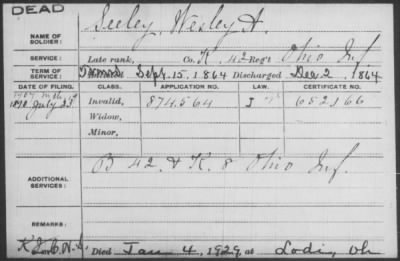 DEAD
NAME OF SOLDIER: Seeley, Wesley A.
SERVICE: Late rank, Co. K, 42 Reg't Ohio Inf
TERM OF SERVICE: Sept. 15, 1864 Discharged Dec 2, 1864
DATE OF FILING. CLASS. APPLICATION NO. LAW. CERTIFICATE NO.
1890 July 25 Invalid, 874.564 J 652166
Widow,
Minor,
ADDITIONAL SERVICES: B 42. & K. 8 Ohio Inf.
REMARKS:
Died Jan 4, 1929, at Lodi, Oh